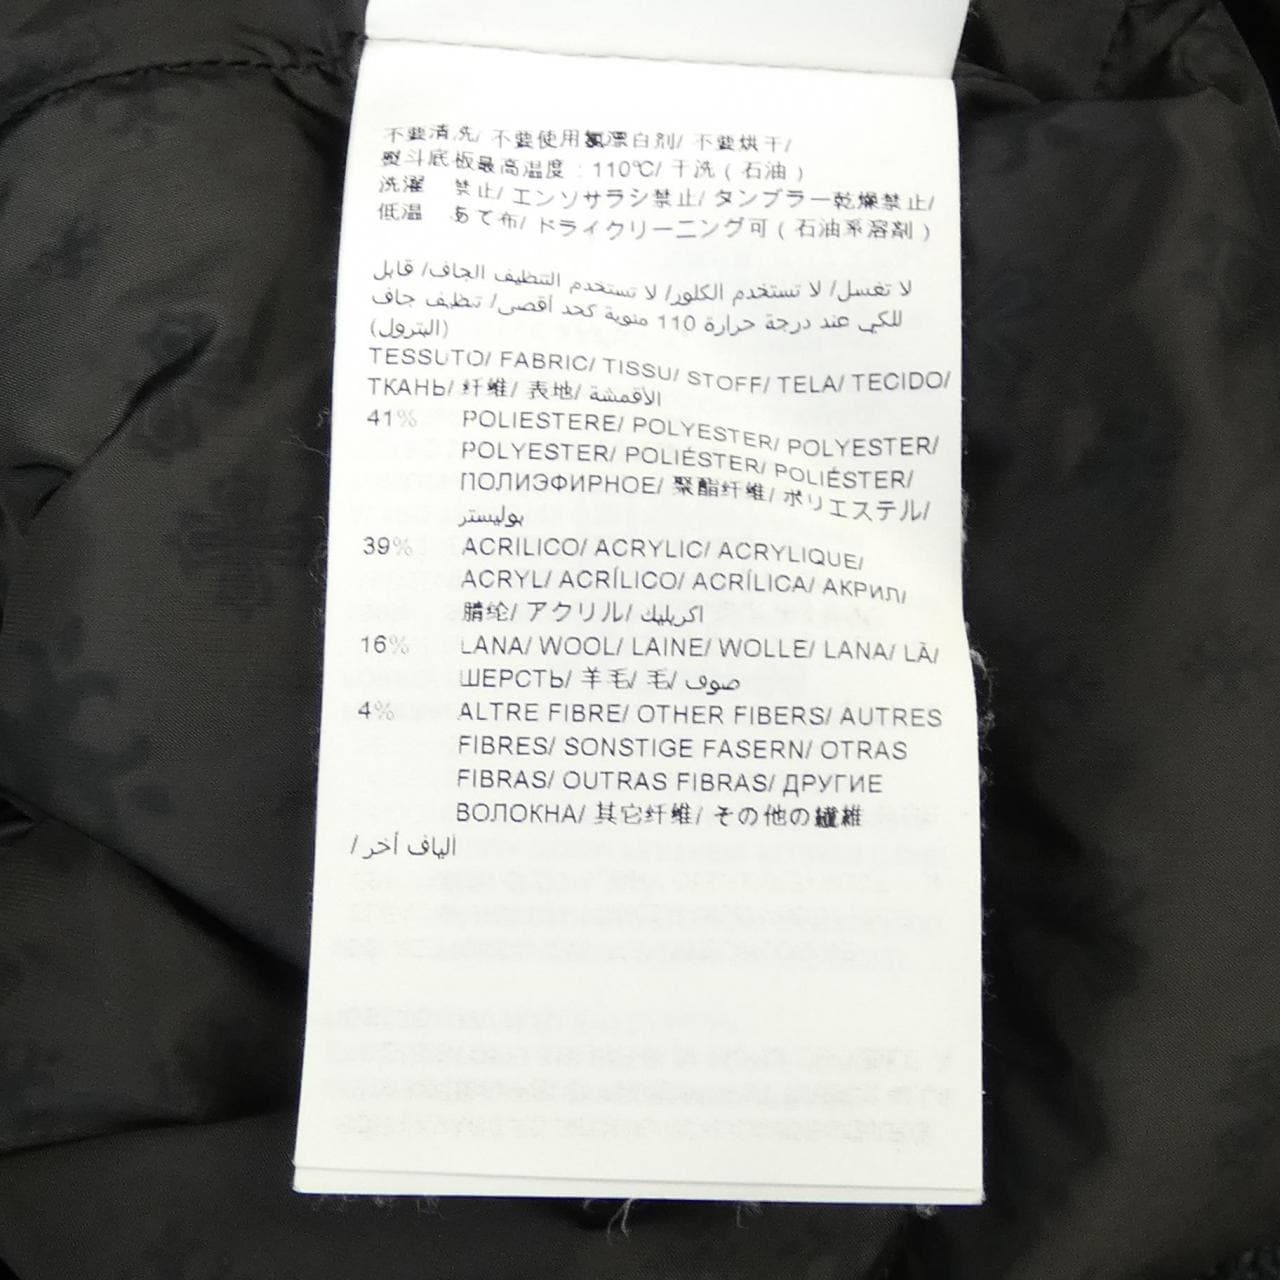 不要清洗/ 不要使用氯漂白剂/ 不要烘干/
熨斗底板最高温度：110℃/ 干洗（石油）
洗濯 禁止/ エンソサラシ禁止/ タンブラー乾燥禁止/
低温 あて布/ ドライクリーニング可（石油系溶剤）
لا تغسل/ لا تستخدم الكلور/ لا تستخدم التنظيف الجاف/ قابل
للكي عند درجة حرارة 110 مئوية كحد أقصى/ تنظيف جاف
(البترول)
TESSUTO/ FABRIC/ TISSU/ STOFF/ TELA/ TECIDO/
ТКАНЬ/ 纤维/ 表地/ الأقمشة
41% POLIESTERE/ POLYESTER/ POLYESTER/
POLYESTER/ POLIÉSTER/ POLIÉSTER/
ПОЛИЭФИРНОЕ/ 聚酯纤维/ ポリエステル/
بوليستر
39% ACRILICO/ ACRYLIC/ ACRYLIQUE/
ACRYL/ ACRÍLICO/ ACRÍLICA/ АКРИЛ/
腈纶/ アクリル/ اكريليك
16% LANA/ WOOL/ LAINE/ WOLLE/ LANA/ LÃ/
ШЕРСТЬ/ 羊毛/ 毛/ صوف
4% ALTRE FIBRE/ OTHER FIBERS/ AUTRES
FIBRES/ SONSTIGE FASERN/ OTRAS
FIBRAS/ OUTRAS FIBRAS/ ДРУГИЕ
ВОЛОКНА/ 其它纤维/ その他の繊維
/ ألياف أخر